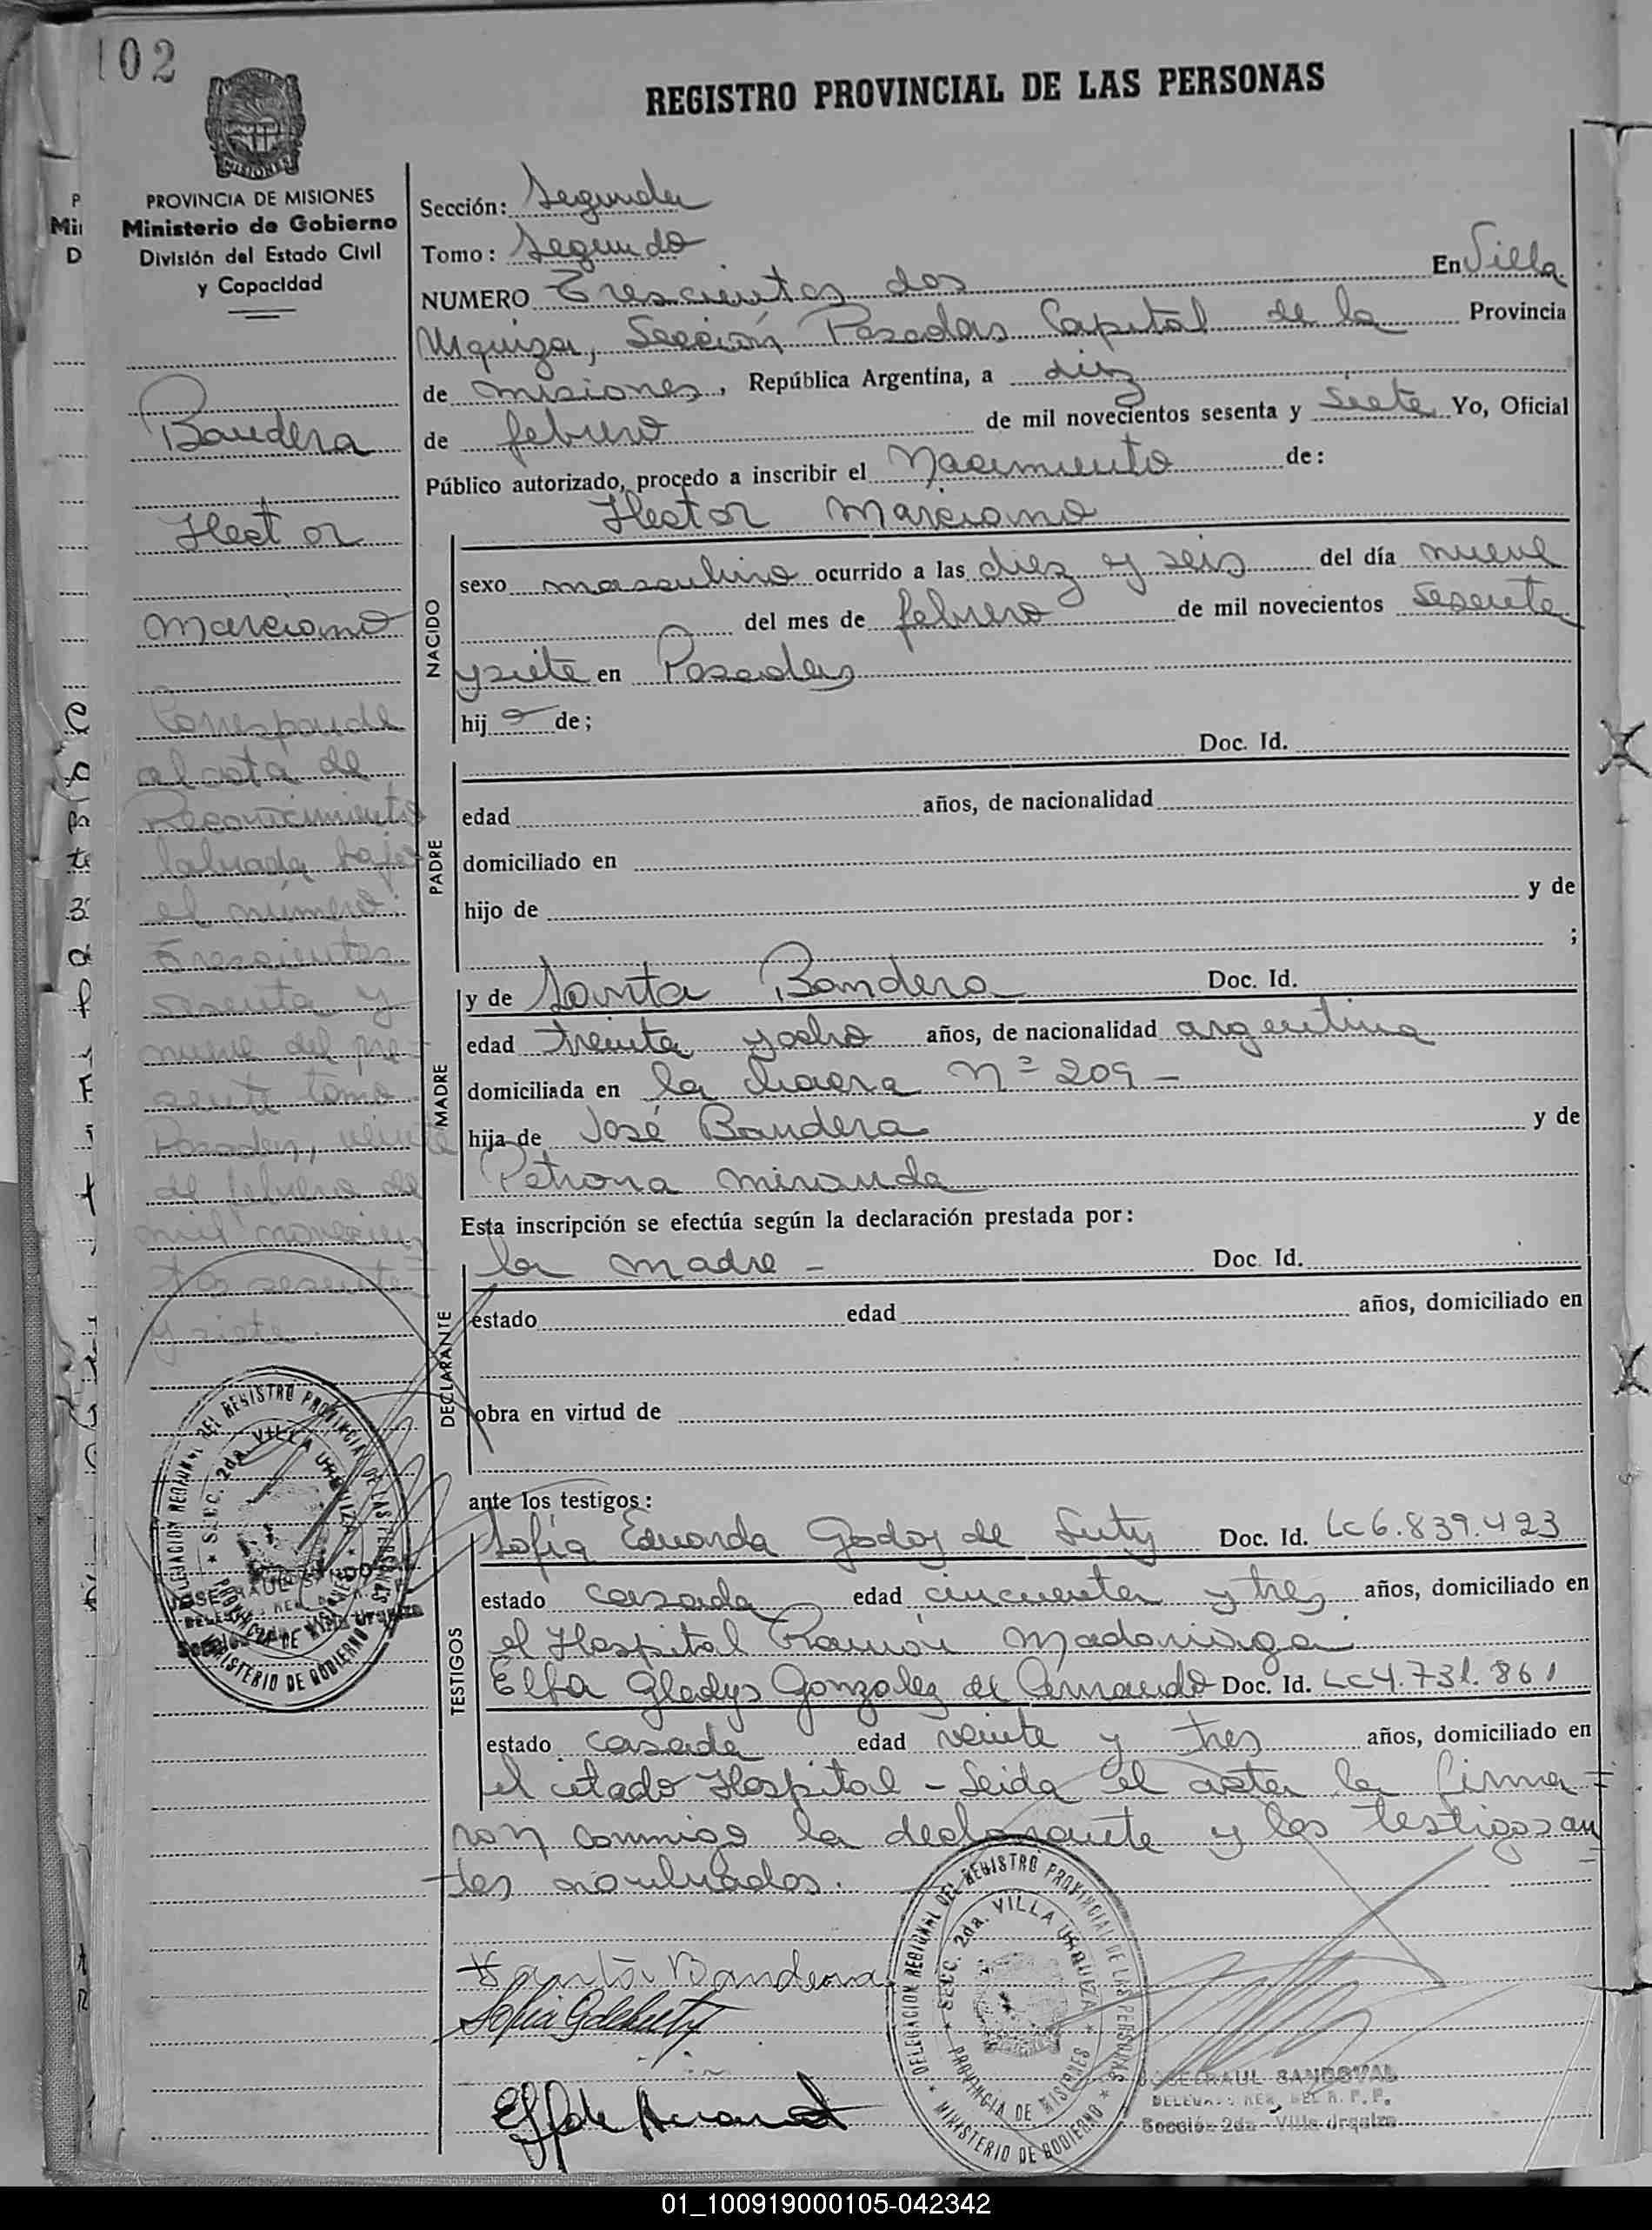 102
REGISTRO PROVINCIAL DE LAS PERSONAS
MISIONES
PROVINCIA DE MISIONES
Ministerio de Gobierno
División del Estado Civil
y Capacidad
Bandera
Hector
Marciano
Corresponde
al acta de
Reconocimiento
labrada bajo
el número
Trescientos
sesenta y
nueve del pre-
sente tomo.
Posadas, veinte
de febrero de
mil novecien-
tos sesenta
y siete.
Sección: Segunda
Tomo: Segundo
NUMERO Trescientos dos En Villa
Urquiza, Sección Posadas Capital de la Provincia
de Misiones, República Argentina, a diez
de febrero de mil novecientos sesenta y siete Yo, Oficial
Público autorizado, procedo a inscribir el Nacimiento de:
Hector Marciano
NACIDO
sexo masculino ocurrido a las diez y seis del día nueve
del mes de febrero de mil novecientos sesenta
y siete en Posadas
hij o de;
Doc. Id.
PADRE
edad años, de nacionalidad
domiciliado en
hijo de y de
;
MADRE
y de Santa Bandera Doc. Id.
edad treinta y ocho años, de nacionalidad argentina
domiciliada en la chacra Nº 209 -
hija de José Bandera y de
Petrona Miranda
Esta inscripción se efectúa según la declaración prestada por:
DECLARANTE
la madre - Doc. Id.
estado edad años, domiciliado en
obra en virtud de
ante los testigos:
TESTIGOS
Sofia Eduarda Godoy de Suty Doc. Id. LC 6.839.423
estado casada edad cincuenta y tres años, domiciliado en
el Hospital Ramón Madariaga
Elfa Gladys Gonzalez de Doc. Id. LC 4.731.861
estado casada edad veinte y tres años, domiciliado en
el citado Hospital - Leida el acta la firma=
ron conmigo la declarante y los testigos an
tes nombrados.
Santa Bandera
Sofia G de Suty
Elfa de
DELEGACION REGIONAL DEL REGISTRO PROVINCIAL DE LAS PERSONAS
SECC. 2da. VILLA URQUIZA
PROVINCIA DE MISIONES
MINISTERIO DE GOBIERNO
JOSE RAUL SANDOVAL
DELEGADO REG. DEL R. P. P.
Sección 2da - Villa Urquiza
DELEGACION REGIONAL DEL REGISTRO PROVINCIAL DE LAS PERSONAS
SECC. 2da. VILLA URQUIZA
PROVINCIA DE MISIONES
MINISTERIO DE GOBIERNO
JOSE RAUL SANDOVAL
DELEGADO REG. DEL R. P. P.
Sección 2da - Villa Urquiza
01_100919000105-042342